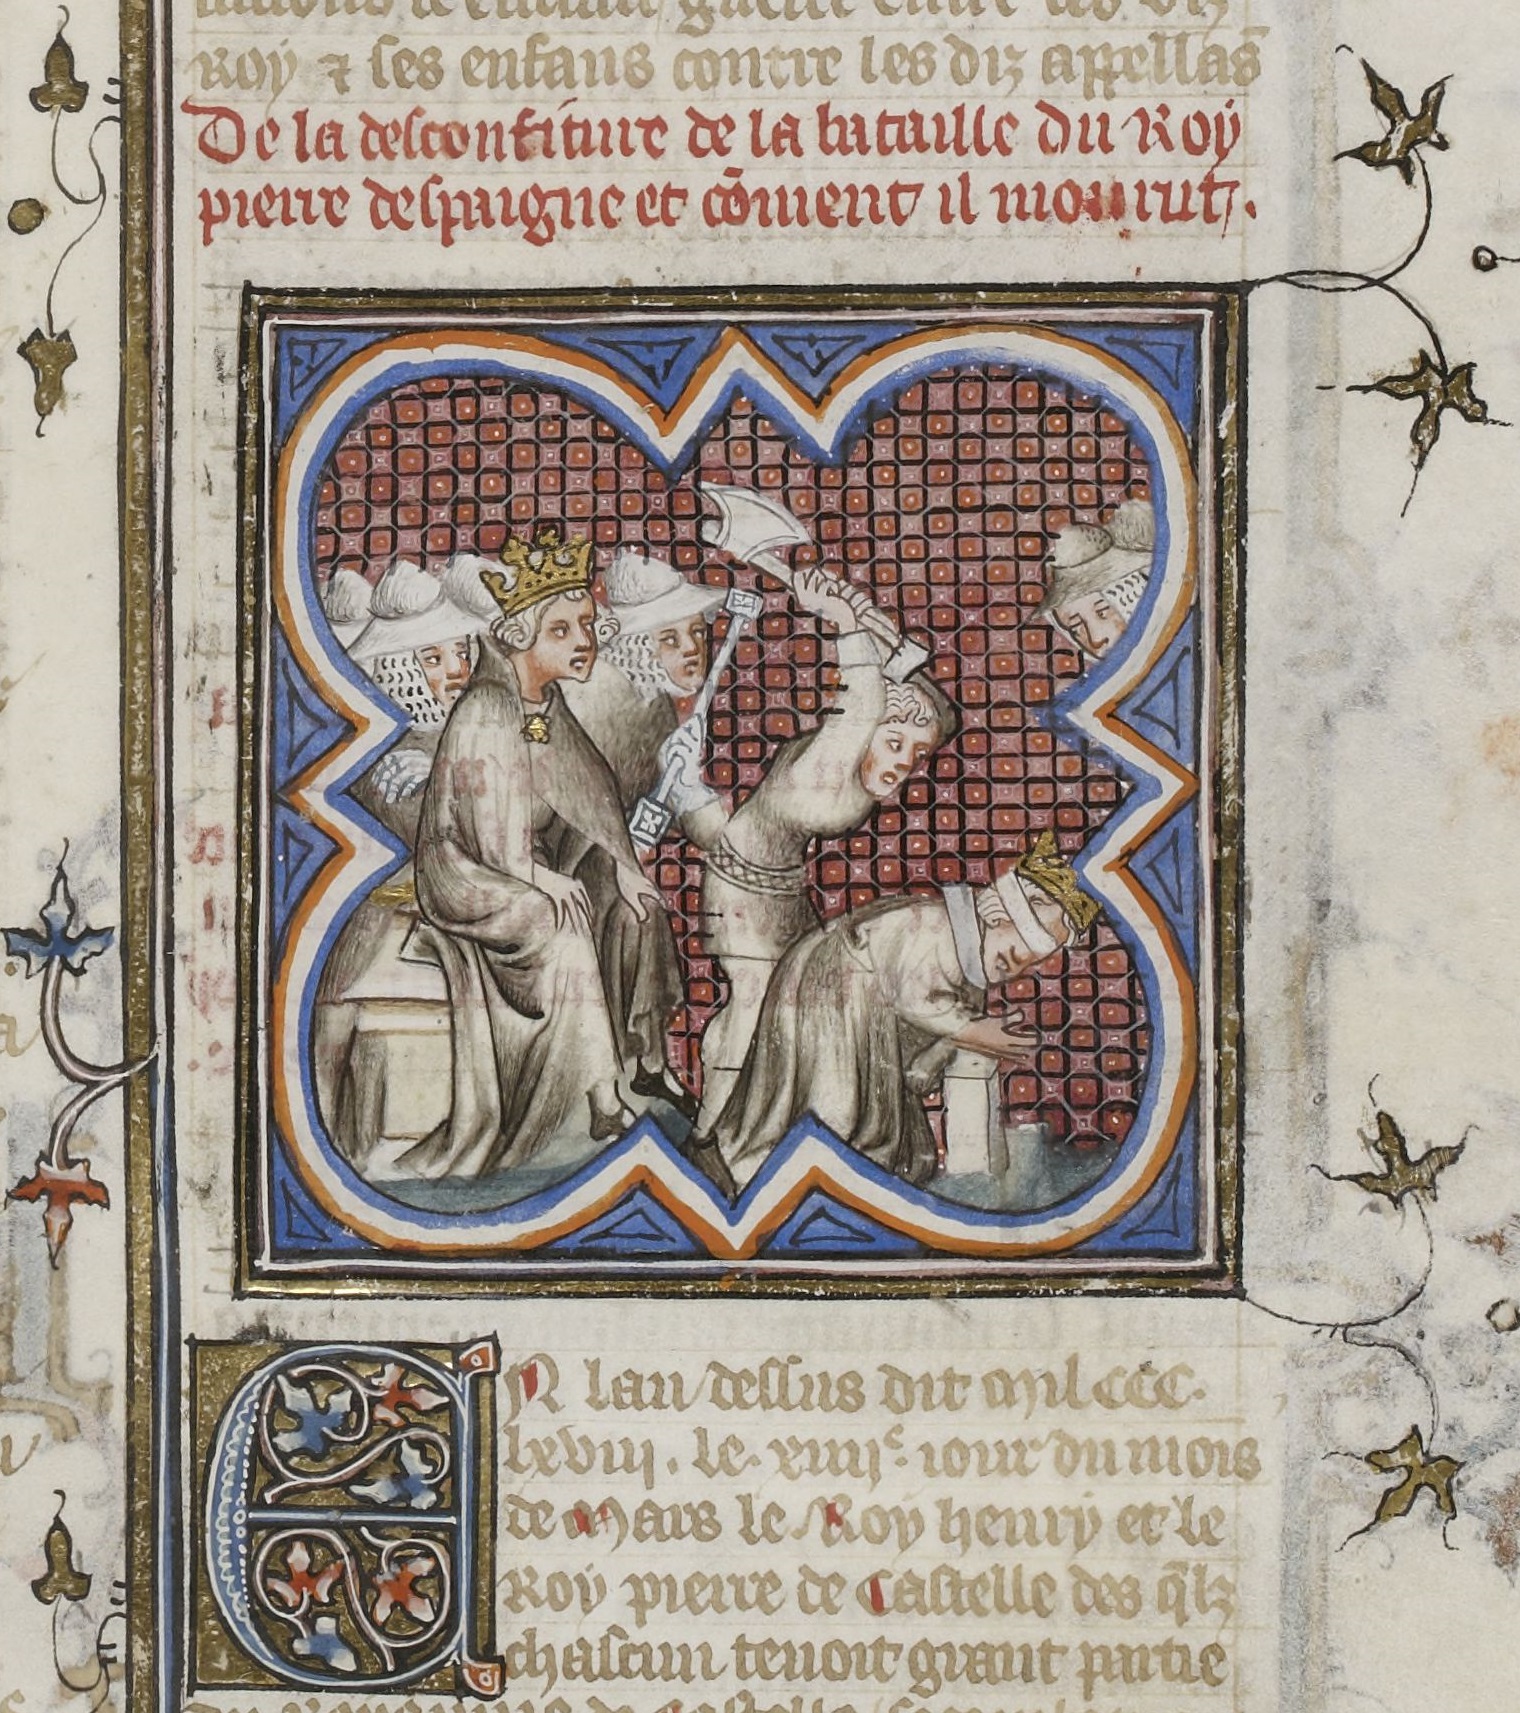 Roy ⁊ ses enfans contre les diz appellãs
De la desconfiture de la bataille du Roy
pierre despaigne et cõment il mourut.
En lan dessus dit mil CCC.
lxviii. le. xiiii<sup>e</sup>. iour du mois
de Mars le Roy henry et le
Roy pierre de Castelle des q̃lz
chascun tenoit grant partie
du Royaume de Castelle